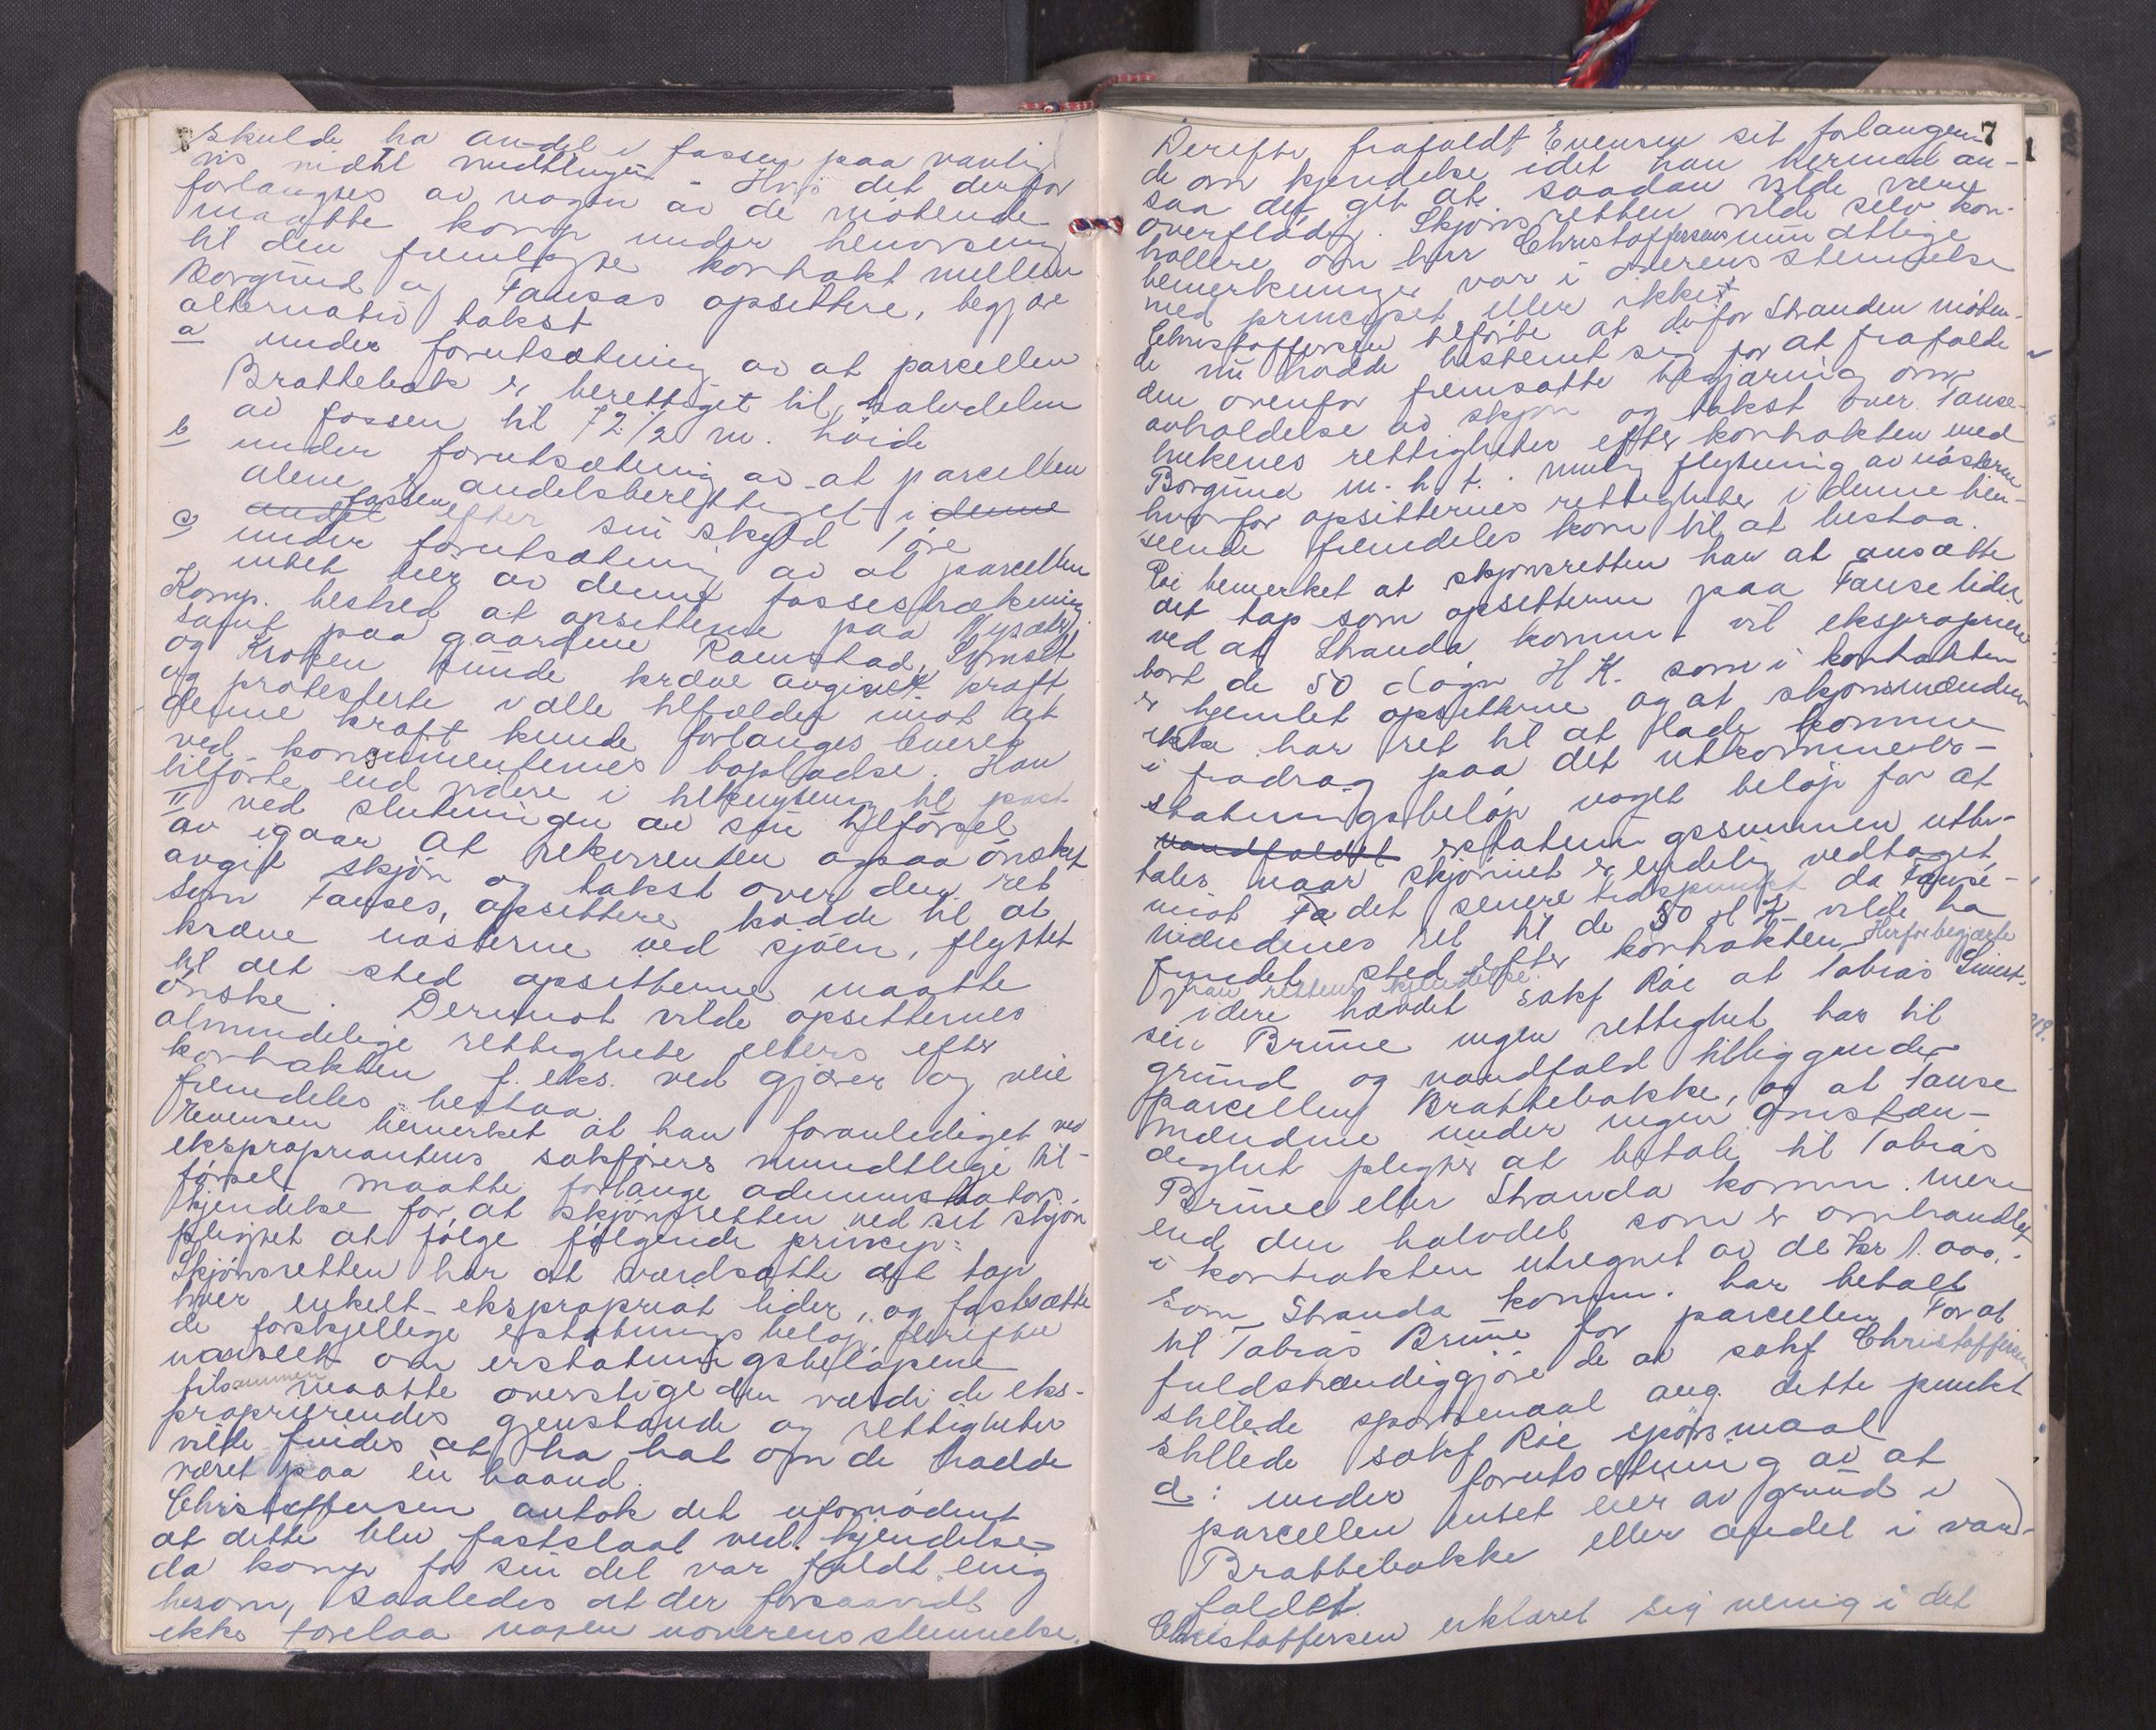 skulde ha andel i fossen paa vanlig
vis
forlangtes av nogen av de mötende
maatte komp under henvisning
til den fremlagte kontrakt mellem
Borgund og Fausas opsittere, begjære
alternativ takst
a under forutsætning av at parcellen
Brattebak er berettiget til halvdelen
av fossen til 72 1/2 m. höide
b under forutsætning av at parcellen
alene er andelsberettiget i denne
andel fossen efter sin skyld 1 öre
c) under forutsætning av at parcellen
intet eier av denne fossestrækning
Komp. bestred at opsitterne paa Nysæter
samt paa gaardene Ramstad, Tynset
og Kroken kunde kræve avgivet kraft
og protesterte i alle tilfælder imot at
denne kraft kunde forlanges levert
ved konsumenternes boplads. Han
tilförte end videre i tilknytning til post
II ved slutningen av sin tilförsel
av igaar at rekvirenten ogsaa önsket
avgit skjön og takst over den ret
som Fauses, opsittere hadde til at
kræve nösterne ved sjöen, flyttet
til det sted opsitterne maatte
önske. Derimot vilde opsitternes
almindelige rettigheter ellers efter
kontrakten f. eks. ved gjærer og veie
fremdeles bestaa.
Evensen bemerket at han foranlediget ved
ekspropriantens sakförers mundtlige til-
försel maatte forlange administrators
kjendelse for at skjönsretten ved sit skjön
pligtet at fölge fölgende princip:
Skjönsretten har at værdsætte det tap
hver enkelt ekspropriat lider, og fastsætte
de forskjellige erstatningsbelöp derefter
uanset om erstatningsbelöpene
tilsammen maatte overstige den værdi de eks-
proprierendes gjenstande og rettigheter
vilde findes at ha hat om de hadde
været paa en haand.
Christoffersen antok det ufornödent
at dette blev fastslaat ved kjendelse
da komp for sin del var fuldt enig
herom, saaledes at der forsaavidt
ikke forelaa nogen uoverensstemmelse.
7
1
Derefter frafaldt Evensen sit forlangen-
de om kjendelse idet han hermed an-
saa det git at saadan vilde være
overflödig. Skjönsretten vilde selv kon-
trollere om herr Christoffersens mundtlige
bemerkninger var i overensstemmelse
med principet eller ikke.
Christoffersen tilförte at de for Stranden möten-
de nu hadde bestemt sig for at frafalde
den ovenfor fremsatte begjæring om
avholdelse av skjön og takst over Fause-
brukenes rettigheter efter kontrakten med
Borgund m. h. t. mulig flytning av nösterne
hvorfor opsitternes rettigheter i denne hen-
seende fremdeles kom til at bestaa.
Röe bemerket at skjönsretten har at ansætte
det tap som opsitterne paa Fause lider
ved at Stranda komm. vil ekspropriere
bort de 50 dögn H K. som i kontrakten
er hjemlet opsitterne og at skjönsmænden
ikke har ret til at lade komme
i fradrag paa det utkomne er-
statningsbelöp noget belöp for at
vandfaldet erstatningssummen utbe-
tales naar skjönnet er endelig vedtaget,
imot Fa det senere tidspunkt da Fause-
mændenes ret til de 50 d H K vilde ha
fundet sted efter kontrakten Herfor begjærte
man rettens kjendelse.
Videre hævdet sakf Röe at Tobias
sen Brune ingen rettighet har til
grund og vandfald tilliggende
parcellen Brattebakke, og at Fause
mændene under ingen omstæn-
dighet pligter at betale til Tobias
Brune eller Stranda komm. mere
end den halvdel som er omhandlet
i kontrakten utregnet av de kr 1.000.-
som Stranda komm. har betalt
til Tobias Brune for parcellen For at
fuldstændiggjöre de av sakf Christoffersen
stillede spörsmaal ang. dette punkt
stillede sakf Röe spörsmaal
d: under forutsætning av at
parcellen intet eier av grund i
Brattebakke eller andel i vand-
faldet.
Christoffersen erklæret sig uenig i det